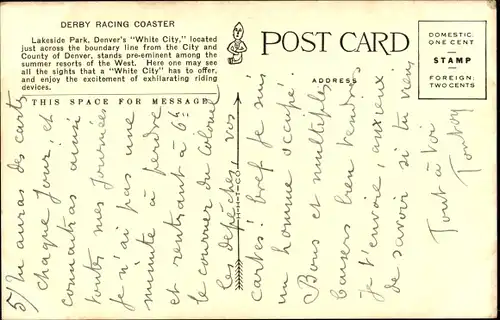 DERBY RACING COASTER
Lakeside Park, Denver's "White City," located
just across the boundary line from the City and
County of Denver, stands pre-eminent among the
summer resorts of the West. Here one may see
all the sights that a "White City" has to offer,
and enjoy the excitement of exhilarating riding
devices.
THIS SPACE FOR MESSAGE
POST CARD
ADDRESS
DOMESTIC
ONE CENT
STAMP
FOREIGN
TWO CENTS
5/ Tu auras des cartes
chaque jour, et
connaitras ainsi
toutes mes journées
je n'ai pas une
minute à perdre
et rentrant à 6h
le courrier du Colonel
les dépêches, vos
cartes! bref je suis
un homme occupé.
Bons et multiples
baisers bien tendres
je t'envoie, anxieux
de savoir si tu viens
Tout à toi